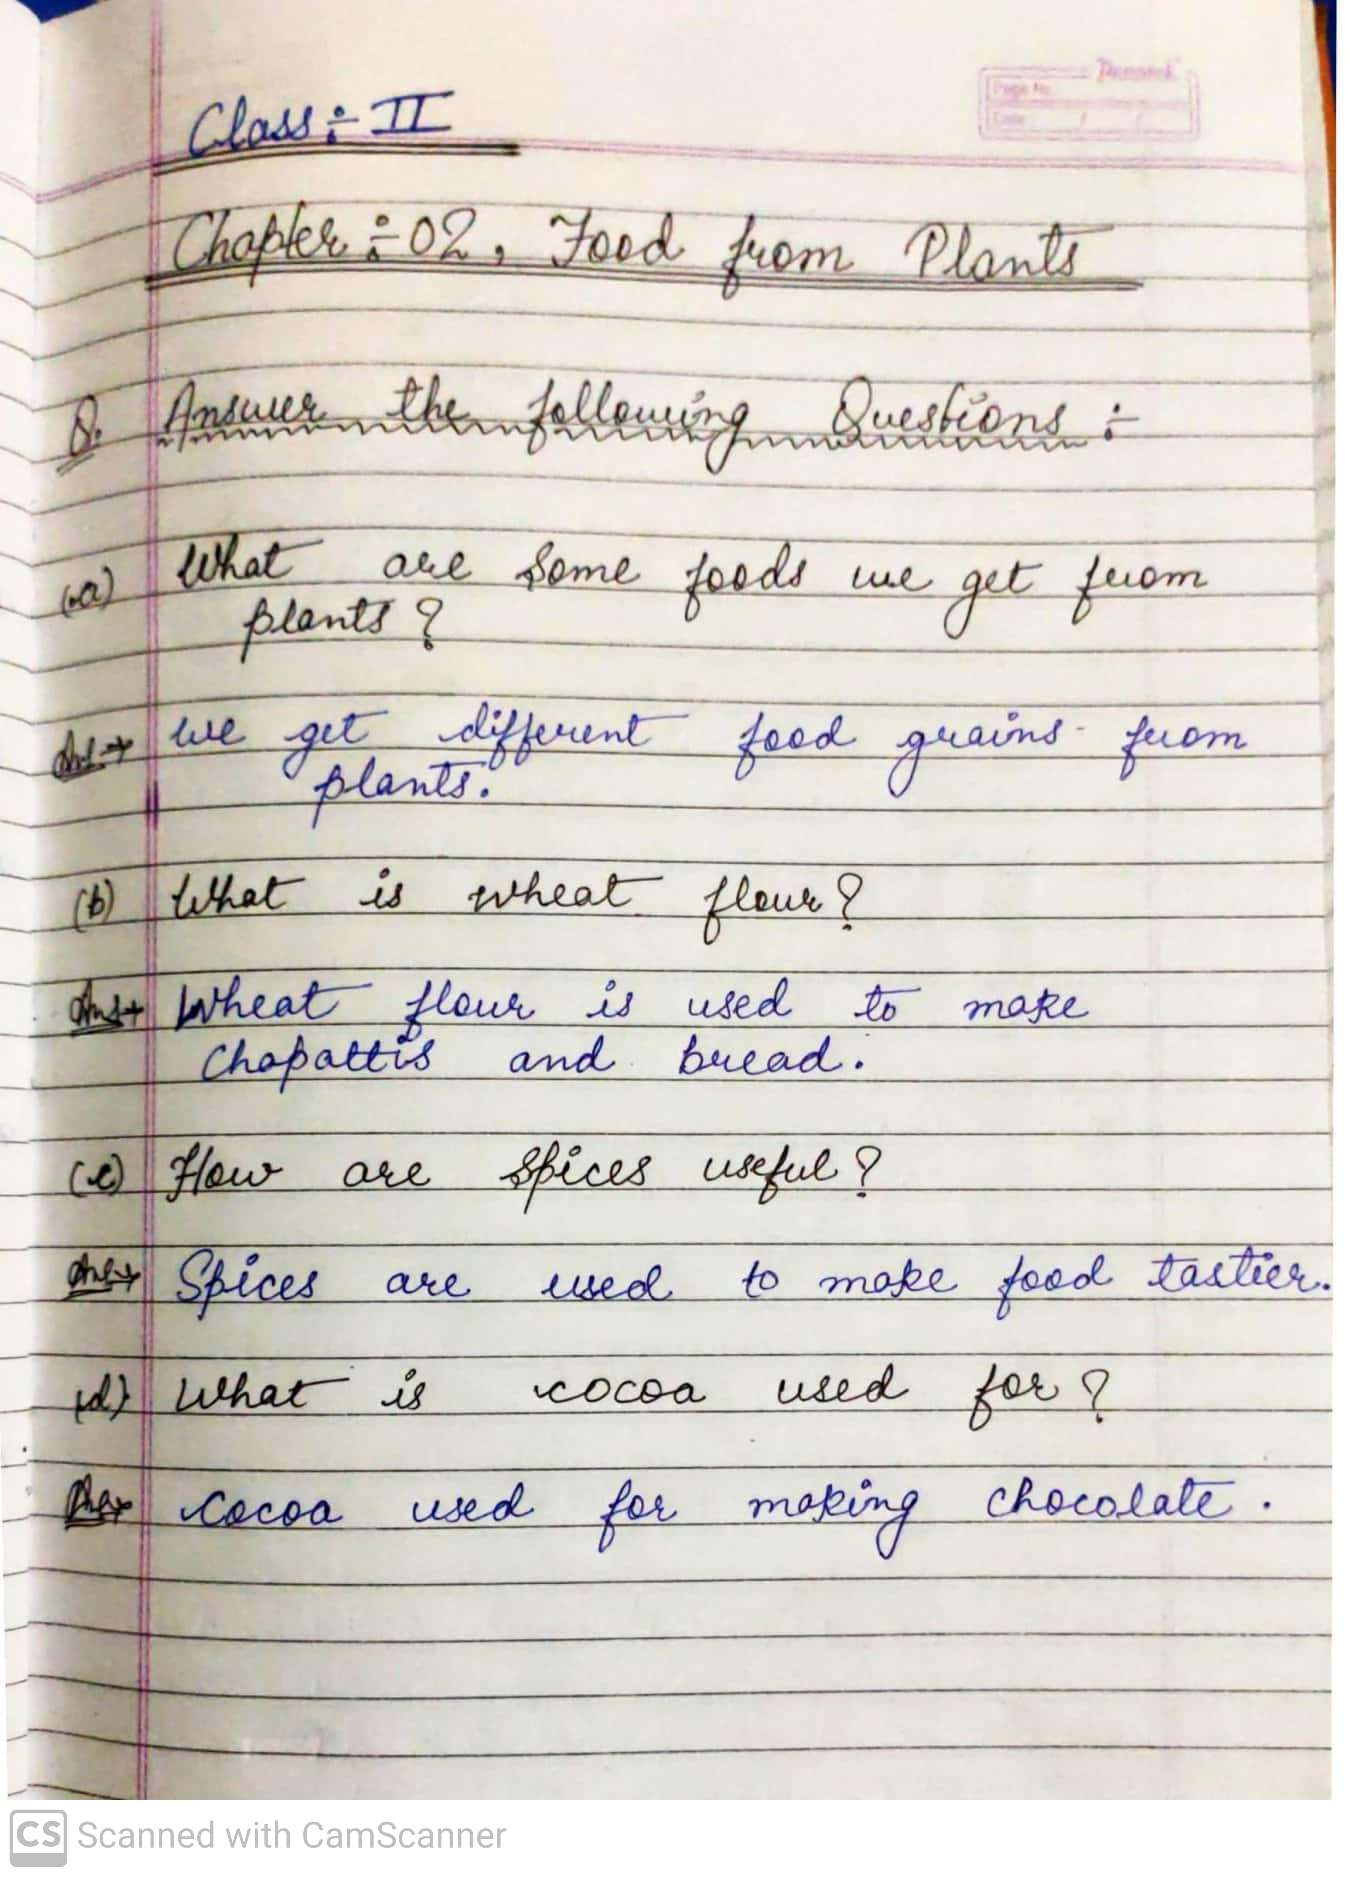 Page No.
Date / /
Class :- II
Chapter :- 02, Food from Plants
Q. Answer the following Questions :-
(a) What are some foods we get from
plants ?
Ans→ we get different food grains from
plants.
(b) What is wheat flour ?
Ans→ Wheat flour is used to make
Chapattis and bread.
(c) How are spices useful ?
Ans→ Spices are used to make food tastier.
(d) What is cocoa used for ?
Ans→ Cocoa used for making chocolate.
CS Scanned with CamScanner